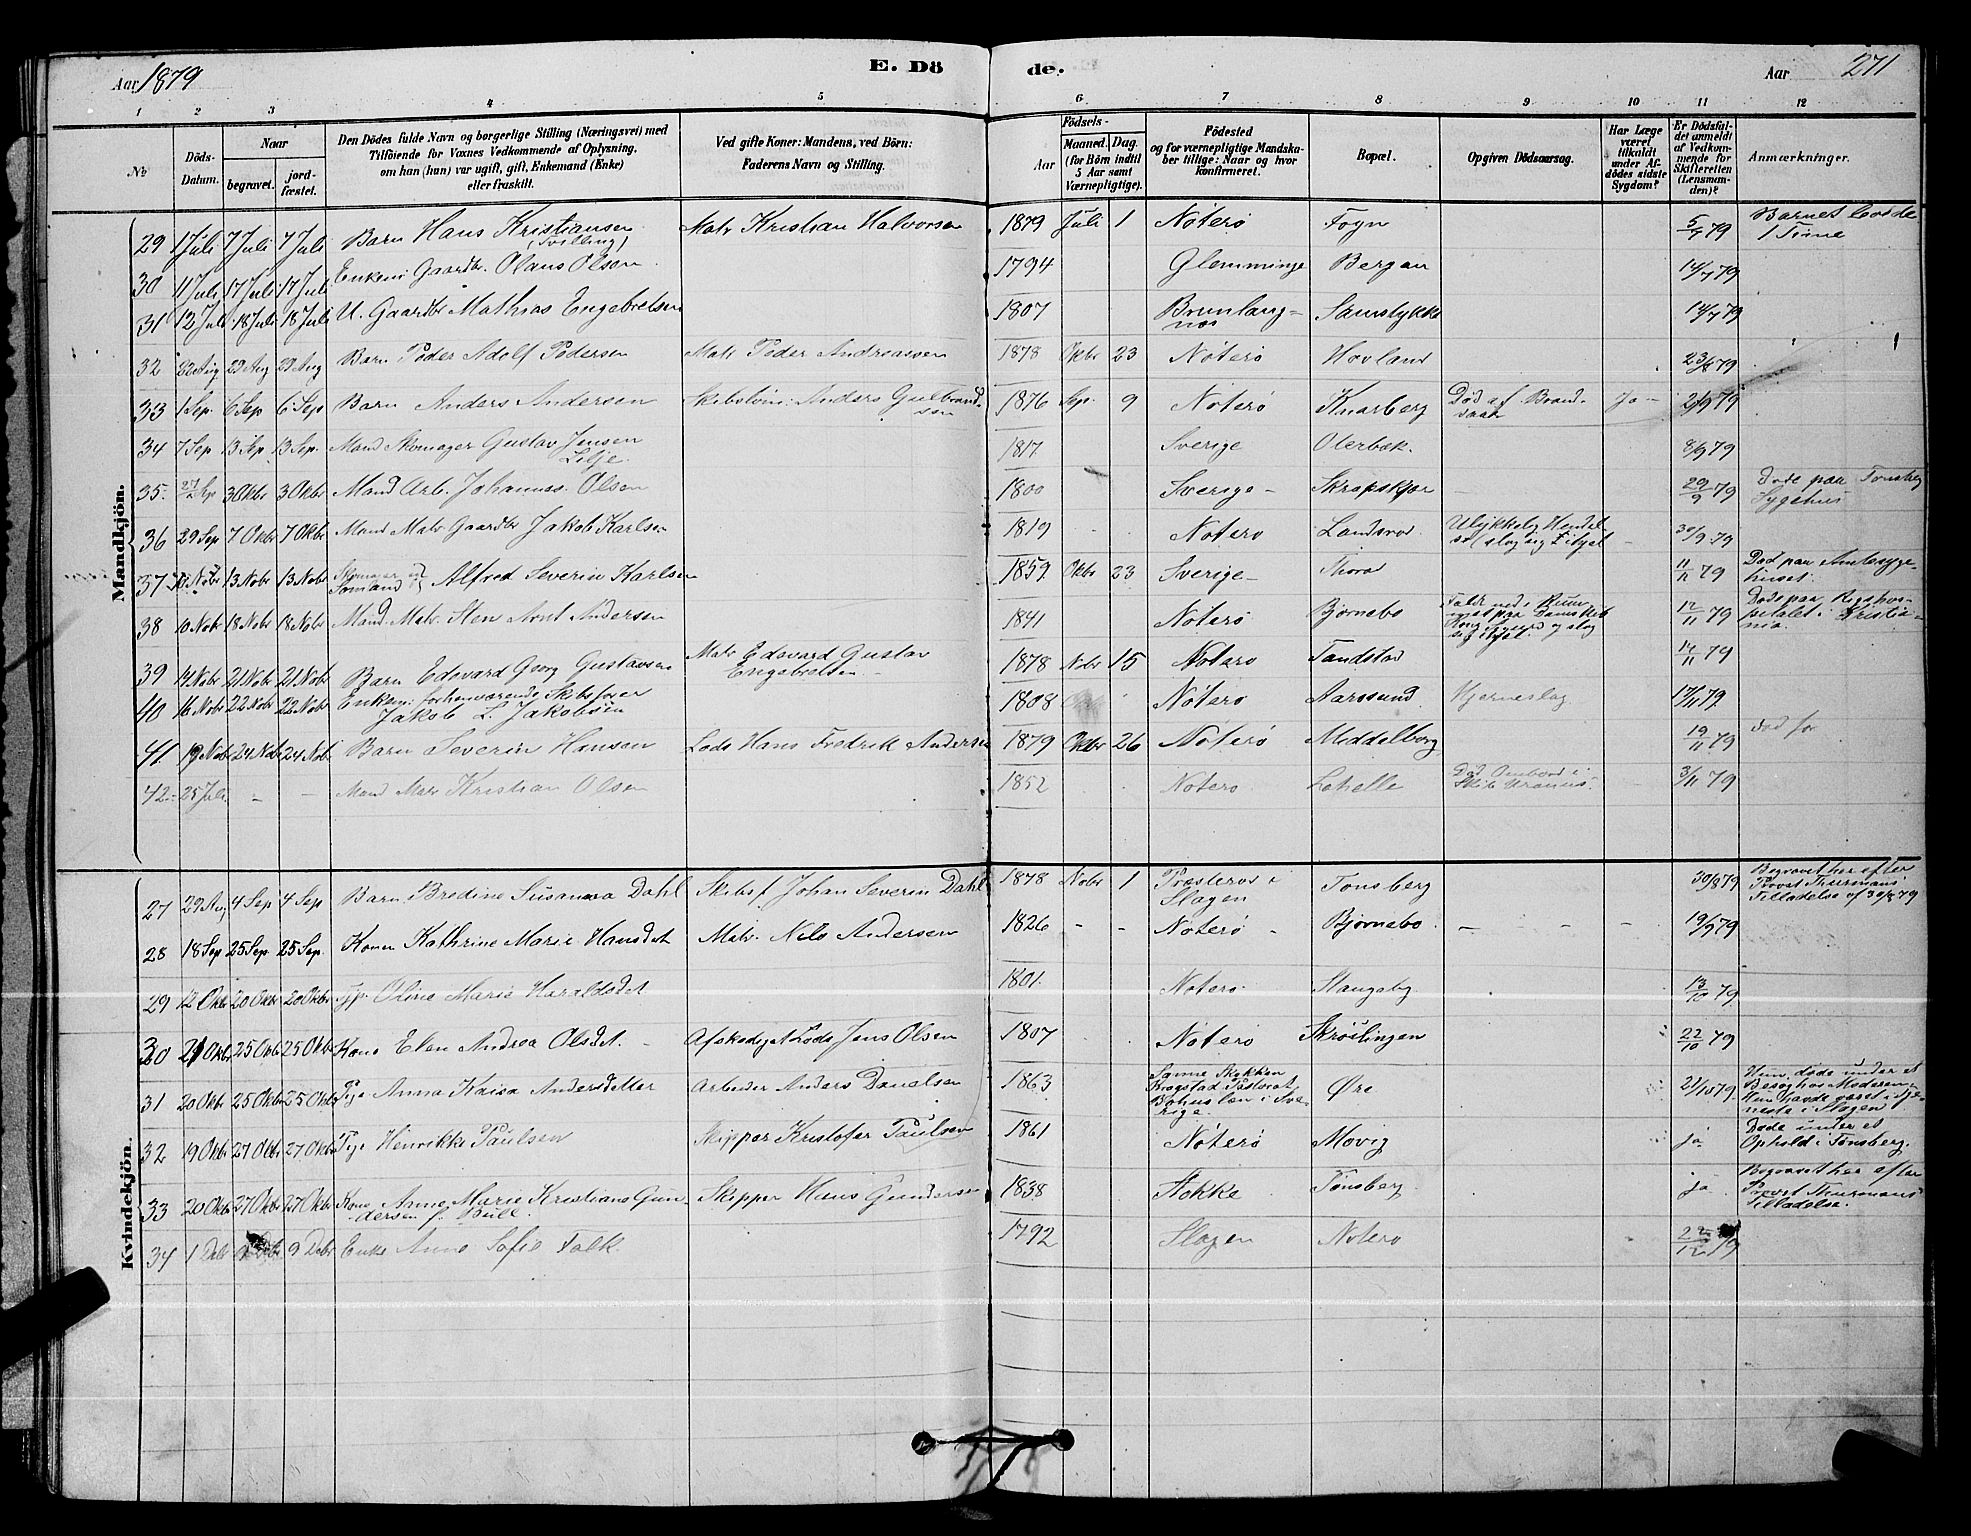 Aar 1879
E. Dö
de.
Aar 271
1 2 3 4 5 6 7 8 9 10 11 12
№
Döds-Datum.
Naar
begravet.
jord-fæstet.
Den Dödes fulde Navn og borgerlige Stilling (Næringsvei) med
Tilföiende for Voxnes Vedkommende af Oplysning,
om han (hun) var ugift, gift, Enkemand (Enke)
eller fraskilt.
Ved gifte Koner: Mandens, ved Börn:
Faderens Navn og Stilling.
Födsels-
Aar
Maaned. Dag.
(for Börn indtil
5 Aar samt
Værnepligtige).
Födested
og for værnepligtige Mandska-
ber tillige: Naar og hvor
konfirmeret.
Bopæl.
Opgiven Dödsaarsag.
Har Læge
været
tilkaldt
under Af-
dödes sidste
Sygdom?
Er Dödsfal-
det anmeldt
af Vedkom-
mende for
Skifteretten
(Lensman-
den)?
Anmærkninger.
Mandkjön.
29 1 Juli 7 Juli 7 Juli Barn Hans Kristiansen (Tvilling) Matr Kristian Halvorsen 1879 Juli 1 Nöterö Fogn 5/7 79 Barnet levede 1 Time
30 11 Juli 17 Juli 17 Juli Enkem. Gaardbr. Olaus Olsen 1794 Glemminge Bergan 14/7 79
31 12 Juli 18 Juli 18 Juli U. Gaardbr Mathias Engebretsen 1807 Brunlang-næs Samstykke 14/7 79
32 22 Aug 29 Aug 29 Aug Barn Peder Adolf Pedersen Matr Peder Andreassen 1878 Oktbr 23 Nöterö Hovland 23/8 79
33 1 Sep. 6 Sep 6 Sep Barn Anders Andersen Skibstöm. Anders Gulbrand-sen 1876 Sep. 9 Nöterö Knarberg Död af Brand-saar Ja 2/9 79
34 7 Sep 13 Sep 13 Sep. Mand Skomager Gustav Jensen Lilje 1817 Sverige Olerbæk. 8/9 79
35 27 Sep 3 Oktbr 3 Oktbr Mand Arb. Johannes Olsen 1800 Sverige Skrapskjær 29/9 79 Döde paa Tönsbg Sygehus
36 29 Sep 7 Oktbr 7 Oktbr Mand Matr Gaardbr Jakob Karlsen 1819 Nöterö Landsrod Ulykkelig Hendel-se (slog sig ihjel 30/9 79
37 Nobr 13 Nobr 13 Nobr Skomager Sömand Alfred Severin Karlsen 1859 Oktbr 23 Sverige Thorod 11/11 79 Död paa Amtssyge-huset
38 10 Nobr 18 Nobr 18 Nobr Mand. Matr. Sten Arnt Andersen 1841 Nöterö Bjornebo Faldt ned i Rum-met paa Dampskib Kong Sigurd og slog sig ihjel 12/11 79 Döde paa Rigshos-pitalet i Kristia-nia.
39 14 Nobr 21 Nobr 21 Nobr Barn Edevard Georg Gustavsen Matr Edevard Gustav Engebretsen 1878 Nobr 15 Nöterö Tandstad 14/11 79
40 16 Nobr 22 Nobr 22 Nobr Enkem. forhenværende Skibsförer Jakob L. Jakobsen 1808 Nöterö Aarosund Hjerneslag 17/11 79
41 19 Nobr 24 Nobr 24 Nobr Barn Severin Hansen Lods Hans Fredrik Andersen 1879 Oktbr 26 Nöterö Middelborg 19/11 79 död för
42 25 Juli - - Mand Matr Kristian Olsen 1852 Nöterö Lahelle Död Ombord i Skib Uranus. 3/11 79
Kvindekjön.
27 29 Aug 4 Sep 4 Sep Barn Bredine Susanna Dahl Skibsf. Johan Severin Dahl 1878 Nobr 1 Præsteröd i Slagen Tönsberg 30/8 79 Begravet her efter Provst Thurmans' Tilladelse af 30/8 79
28 18 Sep 25 Sep. 25 Sep. Kone Kathrine Marie Hansdat Matr. Nils Andersen 1826 - - Nöterö - Bjornebo - - - 19/9 79
29 12 Oktbr 20 Oktbr 20 Oktbr Oline Marie Haraldsdet 1801. Nöterö Stangeby 13/10 79
30 21 Oktbr 25 Oktbr 25 Oktbr Kone Elen Andrea Olsdet. Afskediget Lods Jens Olsen 1807 Nöterö Skröslingen 22/10 79
31 20 Oktbr 25 Oktbr 25 Oktbr Pige Anna Kaisa Andersdatter Arbeider Anders Danelsen 1863 Sanne Krogstad Pastorat, Bohuslän i Sve-rige. Öre 21/10 79 Hun döde under et Besög hos Moderen. Hun havde været i Tje-neste i Slagen
32 19 Oktbr 27 Oktbr 27 Oktbr Pige Henrikke Paulsen Skipper Kristofer Paulsen 1861 Nöterö Movig ja Döde under et Ophold i Tönsberg.
33 20 Oktbr 27 Oktbr 27 Oktbr Kone Anne Marie Kristians Gun-dersen f. Bull Skipper Hans Gundersen 1838 Stokke Tönsberg ja Begravet her efter Provst Thurmans' Tilladelse.
34 1 Debr 9 Debr Enke Anne Sofie Falk. 1792 Slagen Nöterö 22/12 79